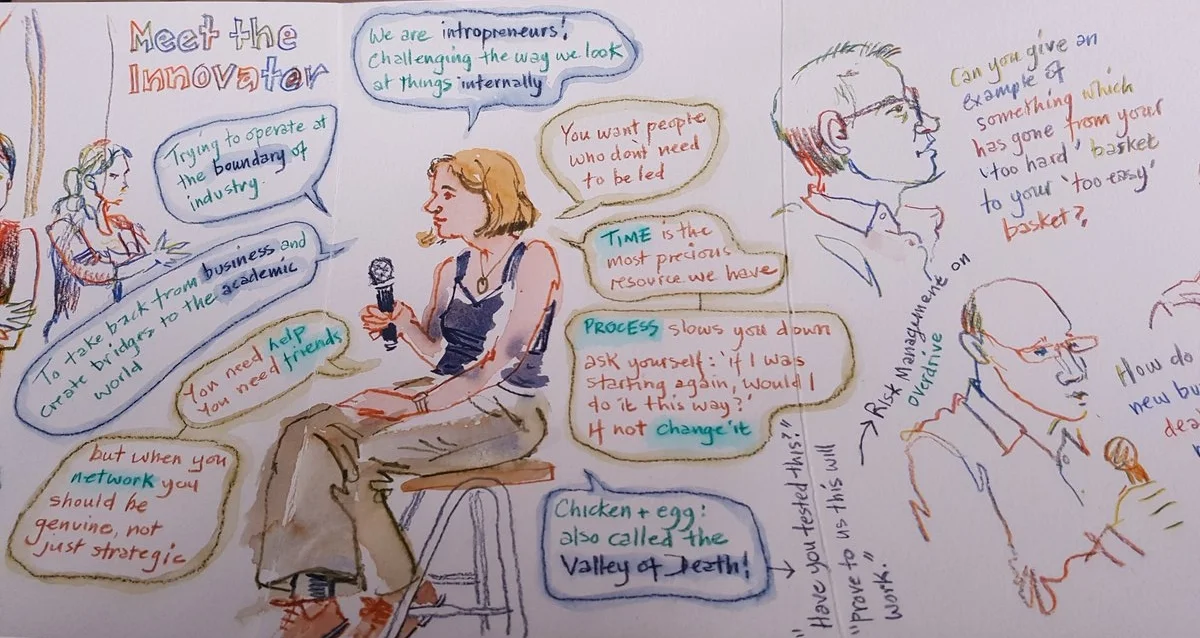 Meet the
Innovator
We are intropreneurs!
Challenging the way we look
at things internally
Trying to operate at
the boundary of
industry.
To take back from business and
create bridges to the academic
world
You need help
You need friends
but when you
network you
should be
genuine, not
just strategic
You want people
who don't need
to be led
TIME is the
most precious
resource we have
PROCESS slows you down
ask yourself: 'if I was
starting again, would I
do it this way?'
If not change it
Chicken + egg:
also called the
Valley of Death!
"Have you tested this?"
"prove to us this will
work."
Risk Management on
overdrive
Can you give an
example of
something which
has gone from your
'too hard' basket
to your 'too easy'
basket?
How do
new bu
dea